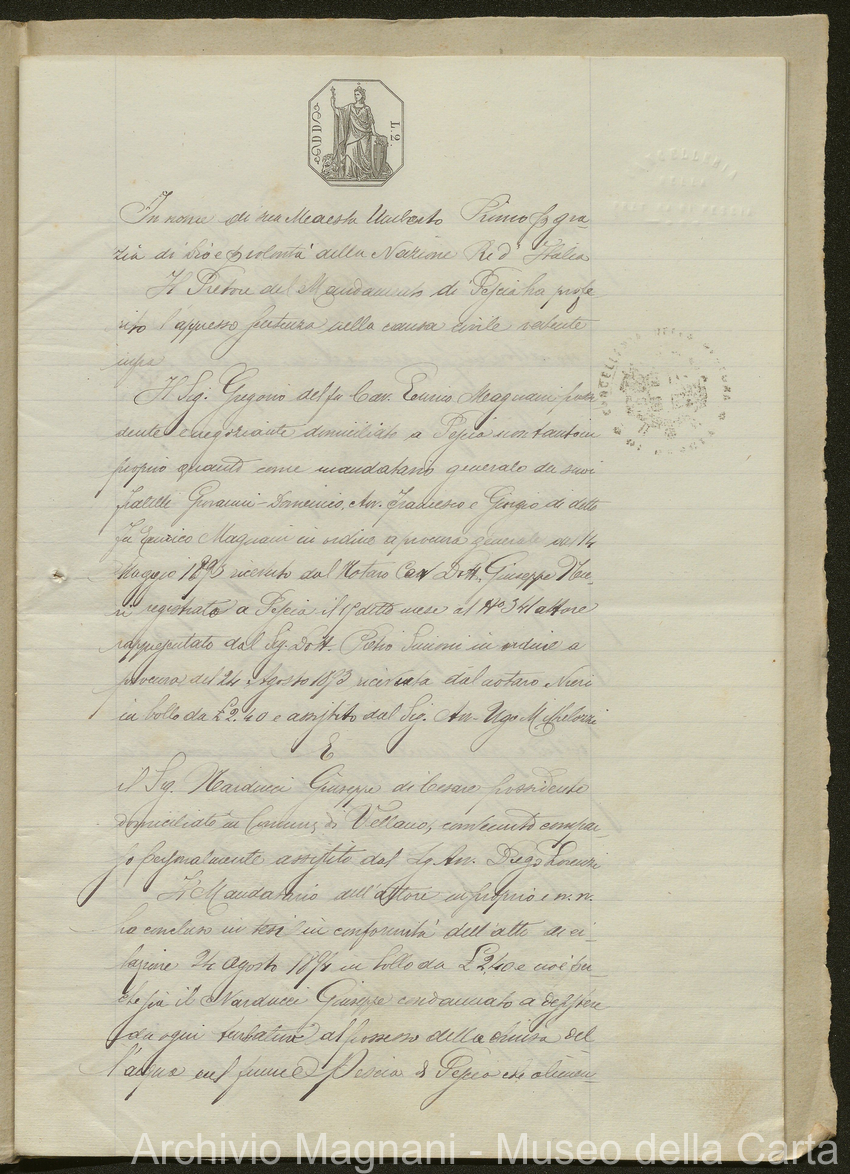 L. 2.
In nome di sua Maestà Umberto Primo per gra-
zia di Dio e per volontà della Nazione Re d'Italia
Il Pretore del Mandamento di Pescia ha profe-
rito l'appresso sentenza nella causa civile vertente
infra
Il Sig. Gregorio del fu Cav. Enrico Magnani possi-
dente e negoziante domiciliato a Pescia non tanto in
proprio quanto come mandatario generale dei suoi
fratelli Giovanni-Domenico, Avv. Francesco e Giorgio di detto
fu Enrico Magnani in ordine a procura generale del 14
Maggio ricevuto dal Notaro Cav. Dott. Giuseppe Ne-
ri registrato a Pescia il detto mese al No 341 attore
rappresentato dal Sig. Dott. Pietro Simoni in ordine a
procura del 24 Agosto 1893 ricevuta dal notaro Neri
in bollo da £ 2.40 e assistito dal Sig. Avv. Ugo Michelozzi
E
il Sig. Narducci Giuseppe di Cesare possidente
domiciliato in Comune di Vellano, convenuto compar-
so personalmente assistito dal Sig. Avv. Diego Lorenzi
Il Mandatario dell'attore in proprio e n. n.
ha concluso in tesi in conformità dell'atto di ci-
tazione 24 Agosto in bollo da £ 2,40 e
che sia il Narducci Giuseppe condannato a desistere
da ogni turbativa al possesso della chiusa del
l'acqua nel fiume Pescia di Pescia che alimen-
CANCELLERIA DELLA PRETURA
Archivio Magnani - Museo della Carta